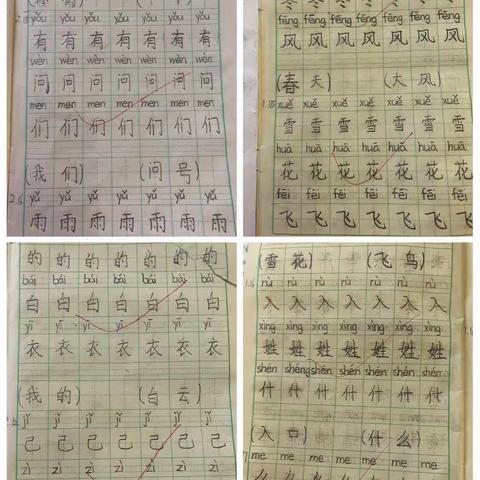 yǒu yǒu yǒu yǒu yǒu yǒu yǒu
有 有 有 有 有 有 有
wèn wèn wèn wèn wèn wèn wèn
问 问 问 问 问 问 问
men men men men men men men
们 们 们 们 们 们 们
(我 们) (问 号)
yǔ yǔ yǔ yǔ yǔ yǔ yǔ
雨 雨 雨 雨 雨 雨 雨
fēng fēng fēng fēng fēng fēng
风 风 风 风 风 风
(春 天) (大 风)
1.15 xuě xuě xuě xuě xuě xuě xuě
雪 雪 雪 雪 雪 雪
huā huā huā huā huā huā
花 花 花 花 花 花
fēi fēi fēi fēi fēi fēi
飞 飞 飞 飞 飞 飞
的 的 的 的 的 的 的
bái bái bái bái bái bái bái
白 白 白 白 白 白 白
yī yī yī yī yī yī yī
衣 衣 衣 衣 衣 衣 衣
(我 的) (白 云)
jǐ jǐ jǐ jǐ jǐ jǐ jǐ
己 己 己 己 己 己 己
zì zì zì zì zì zì zì
(雪 花) (飞 鸟)
rù rù rù rù rù rù rù
入 入 入 入 入 入 入
xìng xìng xìng xìng xìng xìng xìng
姓 姓 姓 姓 姓 姓 姓
shén shéng shén shén shén shén shén
什 什 什 什 什 什 什
(入 口) (什 么)
me me me me me me me
么 么 么 么 么 么 么